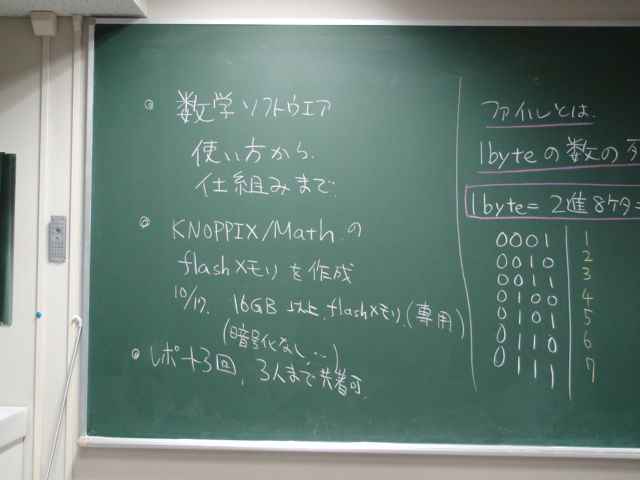 数学ソフトウエア
使い方から
仕組みまで
KNOPPIX/Math の
flashメモリを作成
10/17. 16GB 以上 flashメモリ (専用)
(暗号化なし...)
レポート3回, 3人まで共著可.
ファイルとは.
1byteの数の列
1byte = 2進8ケタ =
0001 1
0010 2
0011 3
0100 4
0101 5
0110 6
0111 7